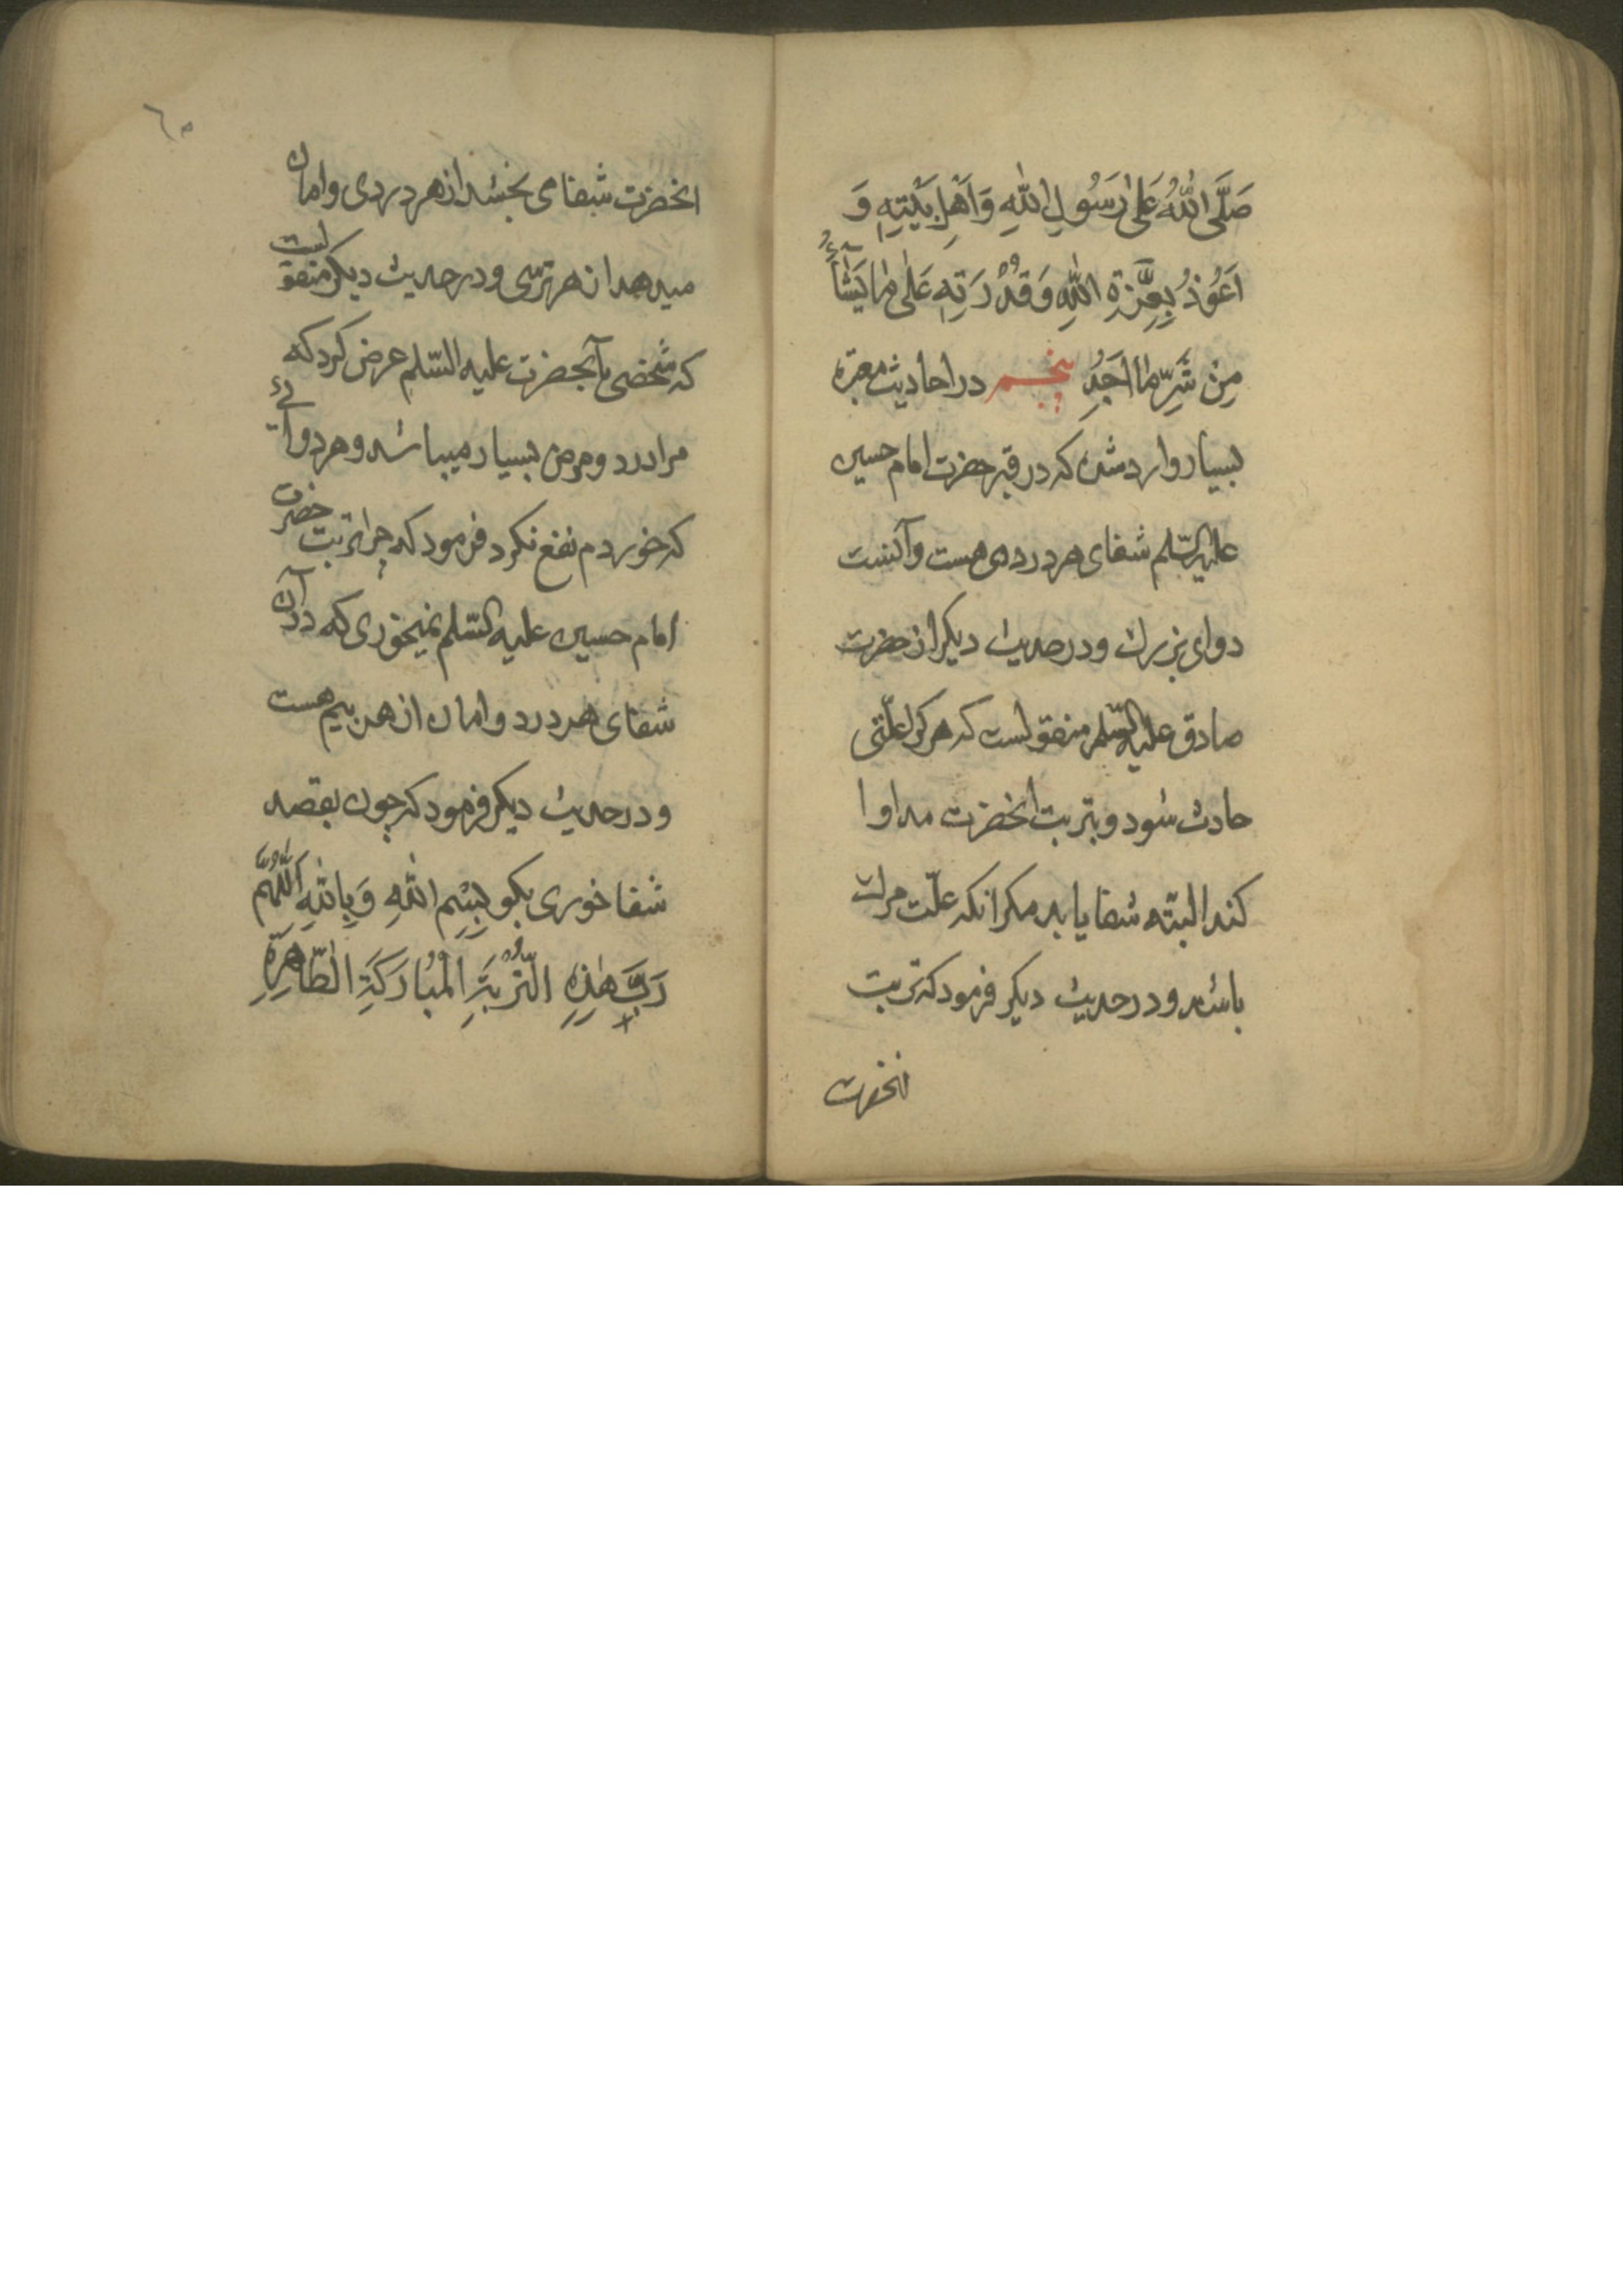 صَلَّی اللهُ عَلیٰ رَسُولِ اللهِ وَاَهْلِ بَیْتِهِ وَ
اَعُوذُ بِعِزَّةِ اللهِ وَقُدْرَتِهِ عَلیٰ مٰا یَشٰآءُ
مِنْ شَرِّ مٰا اَجِدُ پنجم در احادیث معتبره
بسیار وارد شده که در قبر حضرت امام حسین
علیه السّلم شفای هر دردی هست و آنست
دوای بزرک و در حدیث دیکر از حضرت
صادق علیه السّلم منقولست که هر کرا علّتی
حادث شود و بتربت انحضرت مداوا
کند البتّه شفا یابد مکر انکه علّت مرك
باشد و در حدیث دیکر فرمود که تربت
انحضرت
٦٠
انحضرت شفا می بخشد از هر دردی و امان
میدهد از هر ترسی و در حدیث دیکر منقولست
که شخصی بآنحضرت علیه السّلم عرض کرد که
مرا درد و مرض بسیار میباشد و هر دوآئی
که خوردم نفع نکرد فرمود که چرا تربت حضرت
امام حسین علیه السّلم نمیخوری که در آن
شفای هر درد و امان از هر بیم هست
و در حدیث دیکر فرمود که چون بقصد
شفا خوری بکو بِسْمِ اللهِ وَبِاللهِ اَللّٰهُمَّ
رَبَّ هٰذِهِ التُّرْبَةِ الْمُبٰارَکَةِ الطّٰاهِرَةِ